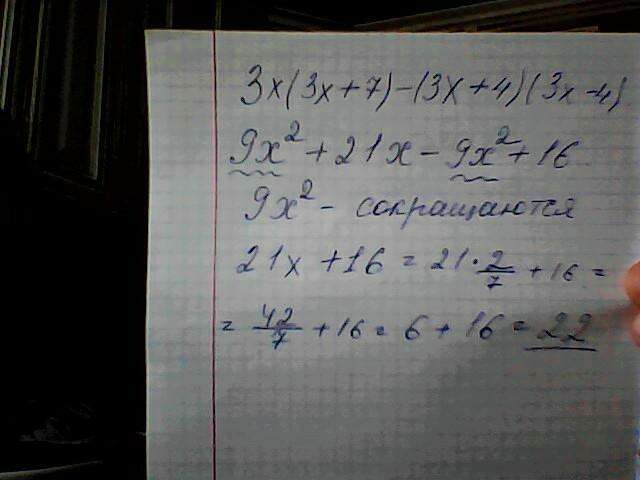 3x(3x+7)-(3x+4)(3x-4)
9x²+21x-9x²+16
9x² - сокращаются
21x+16=21·2/7+16=
=42/7+16=6+16=22